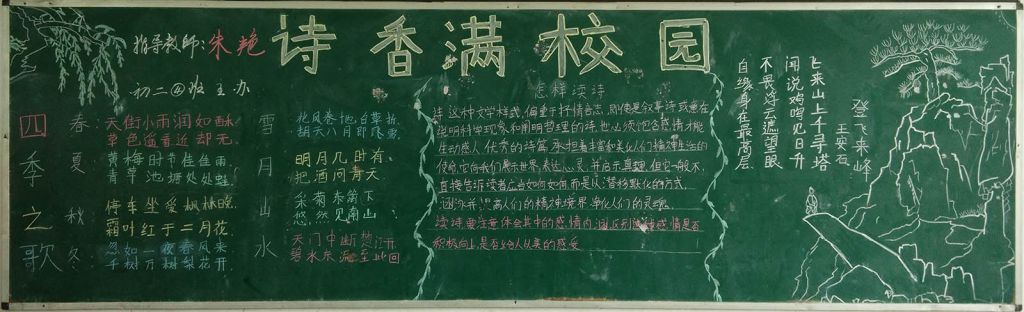 诗香满校园
指导教师:朱艳
初二④班 主办
四季之歌
春:天街小雨润如酥
草色遥看近却无
夏:黄梅时节佳佳雨
青草池塘处处蛙
秋:停车坐爱枫林晚
霜叶红于二月花
冬:忽如一夜春风来
千树万树梨花开
雪 北风卷地白草折
胡天八月即飞雪
月 明月几时有
把酒问青天
山 采菊东篱下
悠然见南山
水 天门中断楚江开
碧水东流至此回
怎样读诗
诗这种文学样式,偏重于抒情言志,即使是叙事诗或重在
说明科学现象和阐明哲理的诗,也必须饱含感情才能
生动感人。优秀的诗篇,承担着丰富和美化人们精神生活的
使命,它向我们展示世界,表达心灵,并启示真理,但它一般不
直接告诉读者应当如何如何,而是以潜移默化的方式,
人们的精神境界,净化人们的灵魂。
读诗要注意体会其中的感情内涵,区别情感,情是否
积极向上,是否给人以美的感受
登飞来峰
王安石
飞来山上千寻塔
闻说鸡鸣见日升
不畏浮云遮望眼
自缘身在最高层